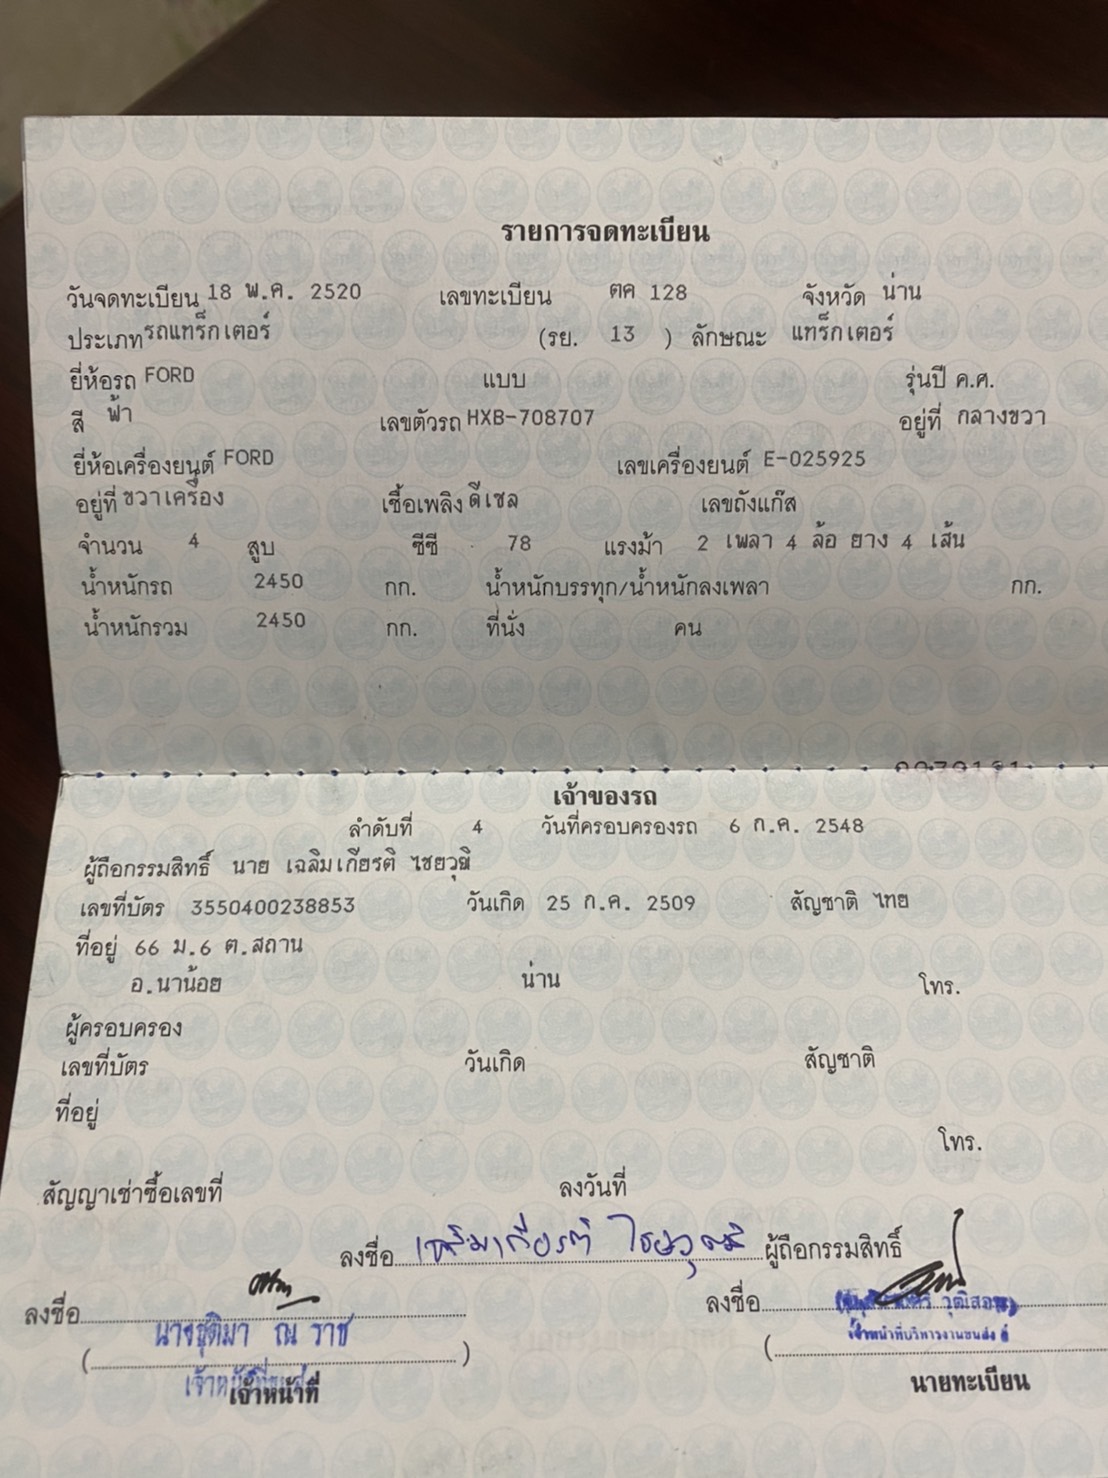 รายการจดทะเบียน
วันจดทะเบียน 18 พ.ค. 2520 เลขทะเบียน ตค 128 จังหวัด น่าน
ประเภท รถแทร็กเตอร์ (รย. 13 ) ลักษณะ แทร็กเตอร์
ยี่ห้อรถ FORD แบบ รุ่นปี ค.ศ.
สี ฟ้า เลขตัวรถ HXB-708707 อยู่ที่ กลางขวา
ยี่ห้อเครื่องยนต์ FORD เลขเครื่องยนต์ E-025925
อยู่ที่ ขวาเครื่อง เชื้อเพลิง ดีเซล เลขถังแก๊ส
จำนวน 4 สูบ ซีซี 78 แรงม้า 2 เพลา 4 ล้อ ยาง 4 เส้น
น้ำหนักรถ 2450 กก. น้ำหนักบรรทุก/น้ำหนักลงเพลา กก.
น้ำหนักรวม 2450 กก. ที่นั่ง คน
เจ้าของรถ
ลำดับที่ 4 วันที่ครอบครองรถ 6 ก.ค. 2548
ผู้ถือกรรมสิทธิ์ นาย เฉลิมเกียรติ ไชยวุฒิ
เลขที่บัตร 3550400238853 วันเกิด 25 ก.ค. 2509 สัญชาติ ไทย
ที่อยู่ 66 ม.6 ต.สถาน
อ.นาน้อย น่าน โทร.
ผู้ครอบครอง
เลขที่บัตร วันเกิด สัญชาติ
ที่อยู่
โทร.
สัญญาเช่าซื้อเลขที่ ลงวันที่
ลงชื่อ เฉลิมเกียรติ ไชยวุฒิ ผู้ถือกรรมสิทธิ์
ลงชื่อ ลงชื่อ
นางชุติมา ณ ราช
( ) (
เจ้าหน้าที่บริหารงานขนส่ง
เจ้าหน้าที่ นายทะเบียน